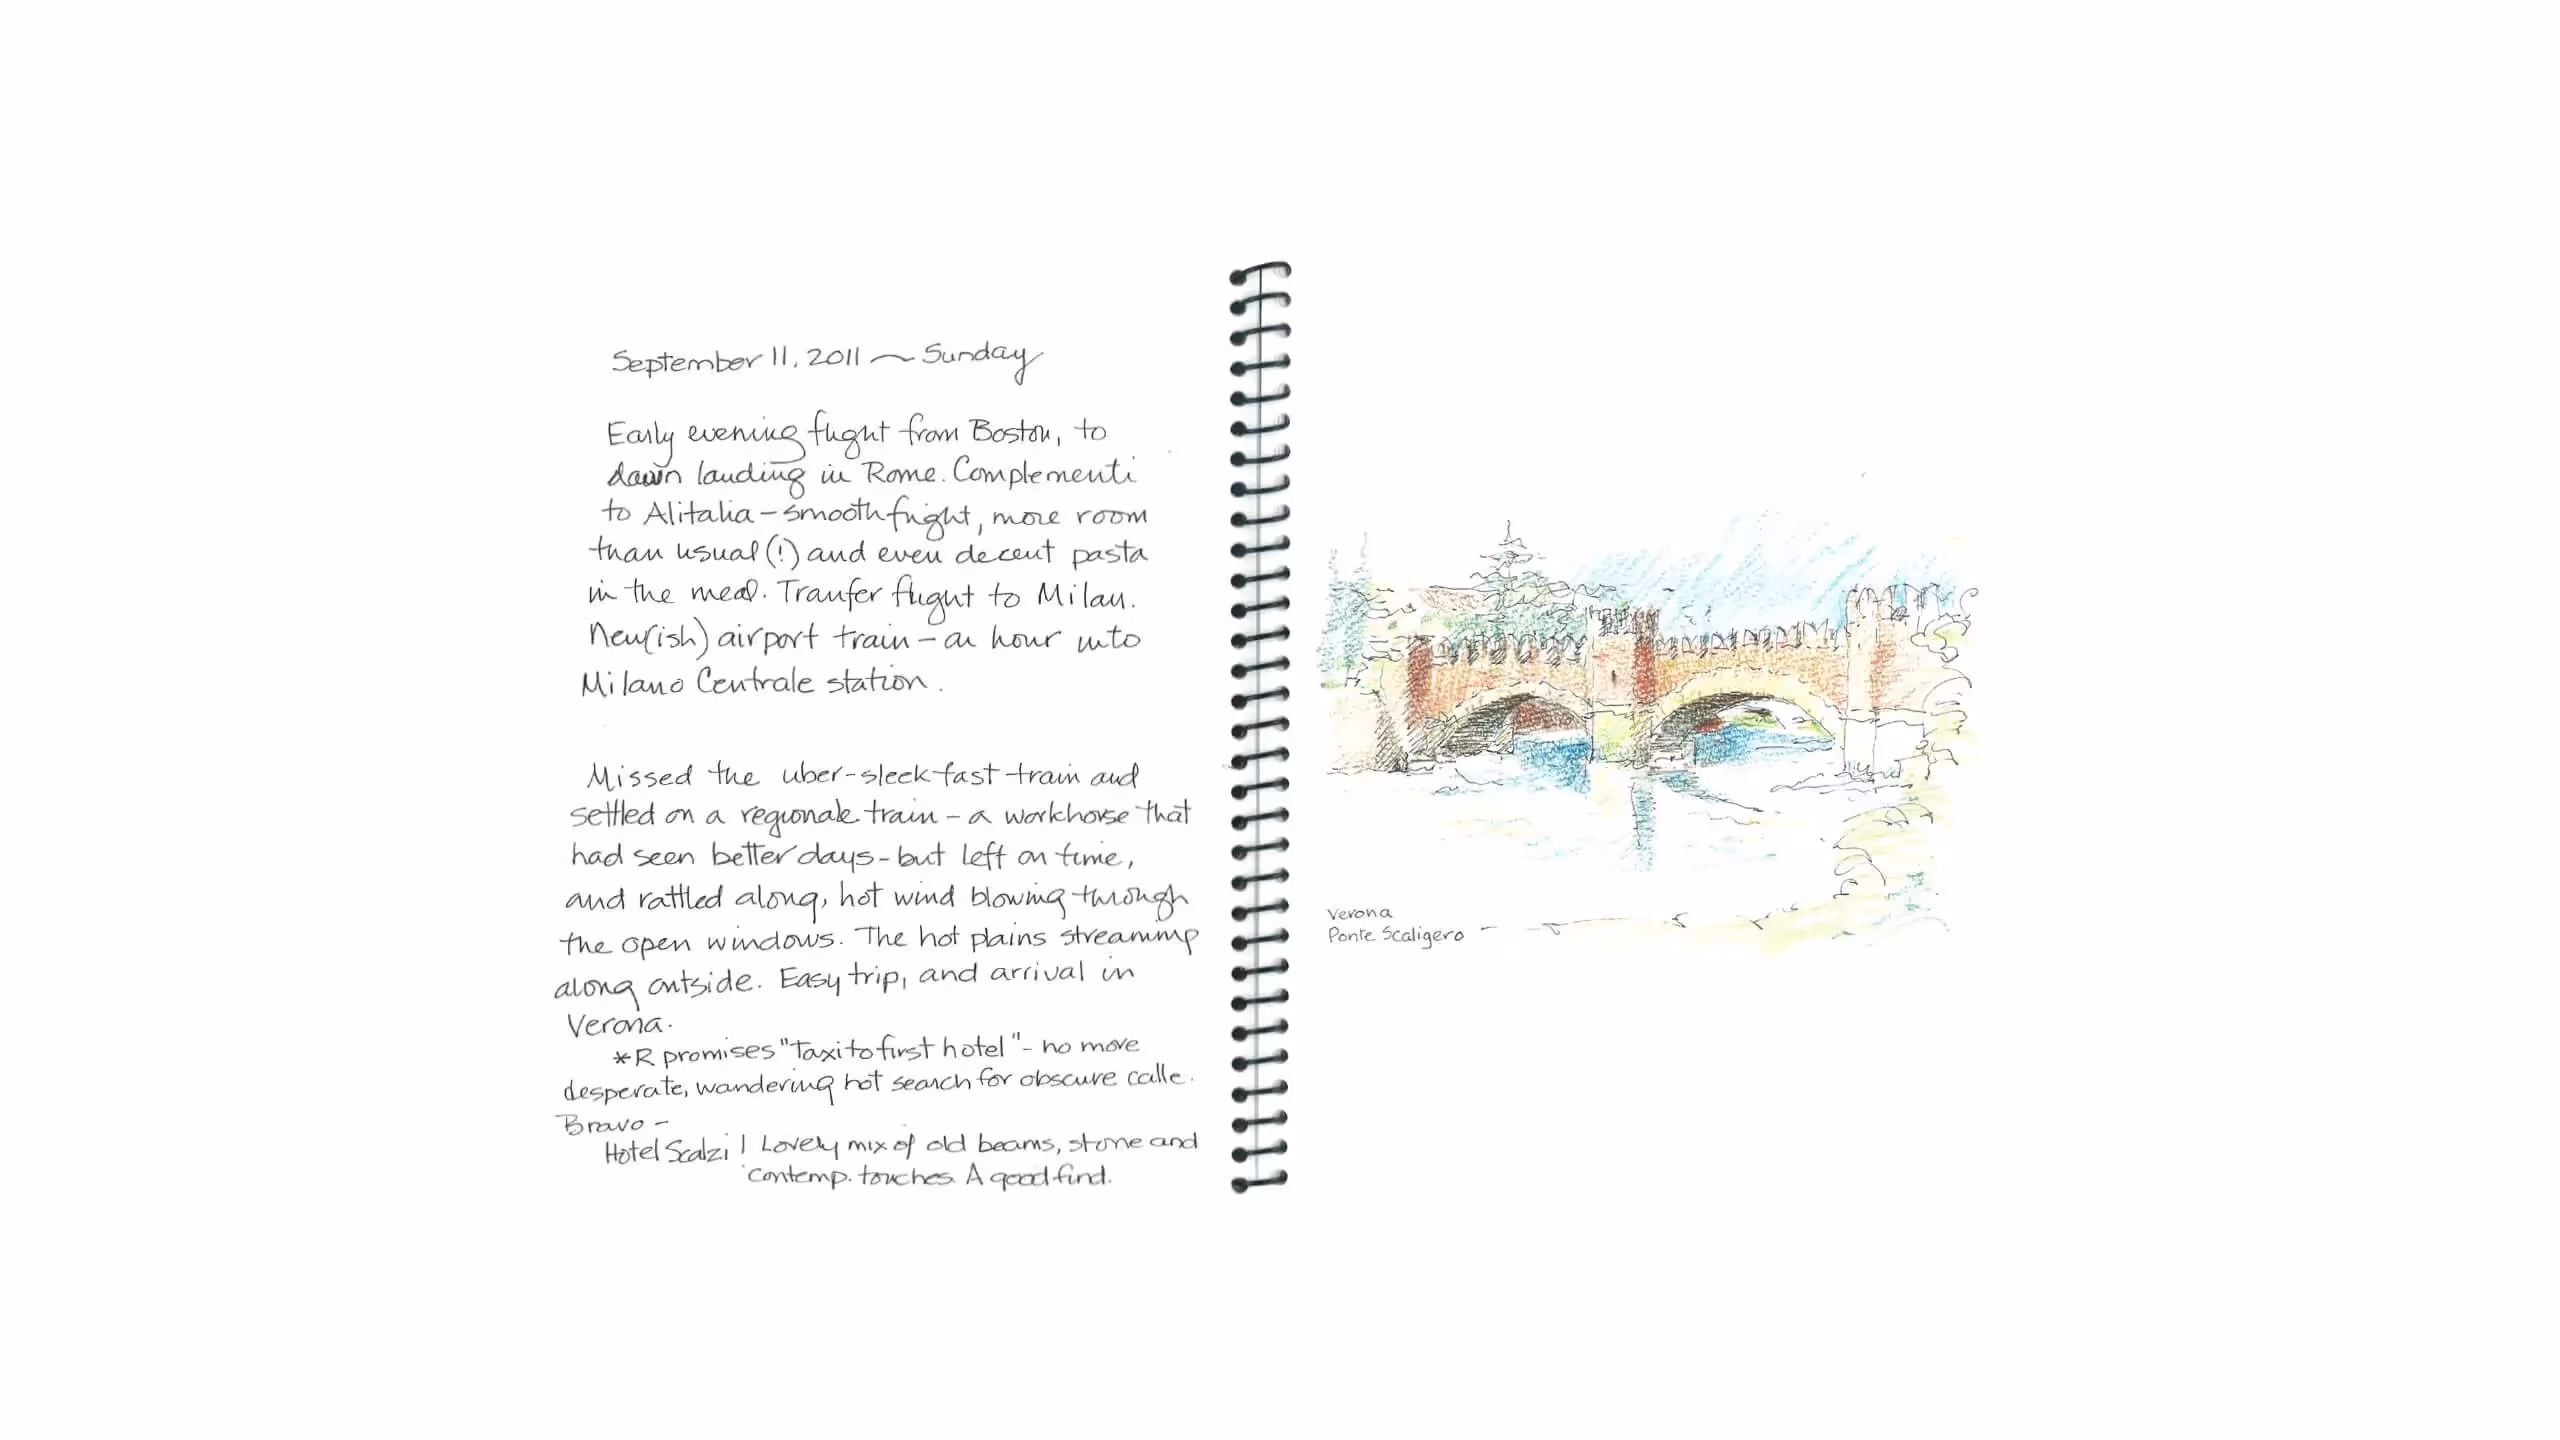 September 11, 2011 ~ Sunday
Early evening flight from Boston, to
dawn landing in Rome. Complementi
to Alitalia - smooth flight, more room
than usual (!) and even decent pasta
in the meal. Tranfer flight to Milan.
New(ish) airport train - an hour into
Milano Centrale station.
Missed the uber-sleek fast train and
settled on a regionale train - a workhorse that
had seen better days - but left on time,
and rattled along, hot wind blowing through
the open windows. The hot plains streaming
along outside. Easy trip, and arrival in
Verona.
*R promises "Taxi to first hotel" - no more
desperate, wandering hot search for obscure calle.
Bravo -
Hotel Scalzi! Lovely mix of old beams, stone and
contemp. touches. A good find.
Verona
Ponte Scaligero